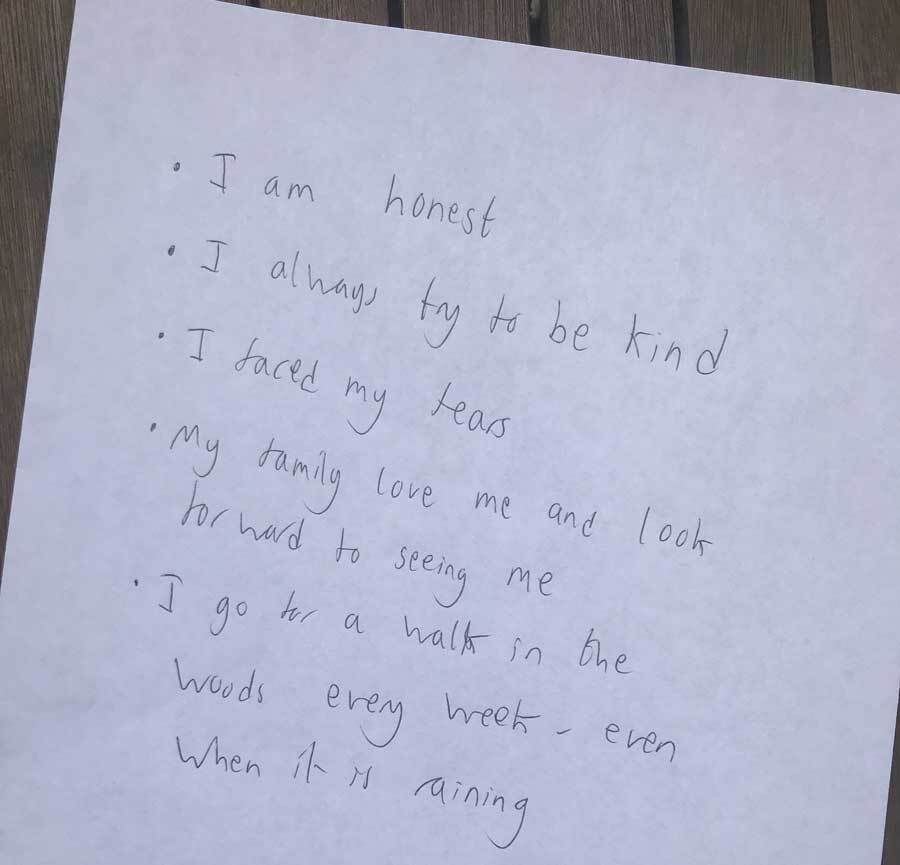 • I am honest
• I always try to be kind
• I faced my fears
• My family love me and look
forward to seeing me
• I go for a walk in the
woods every week - even
when it is raining